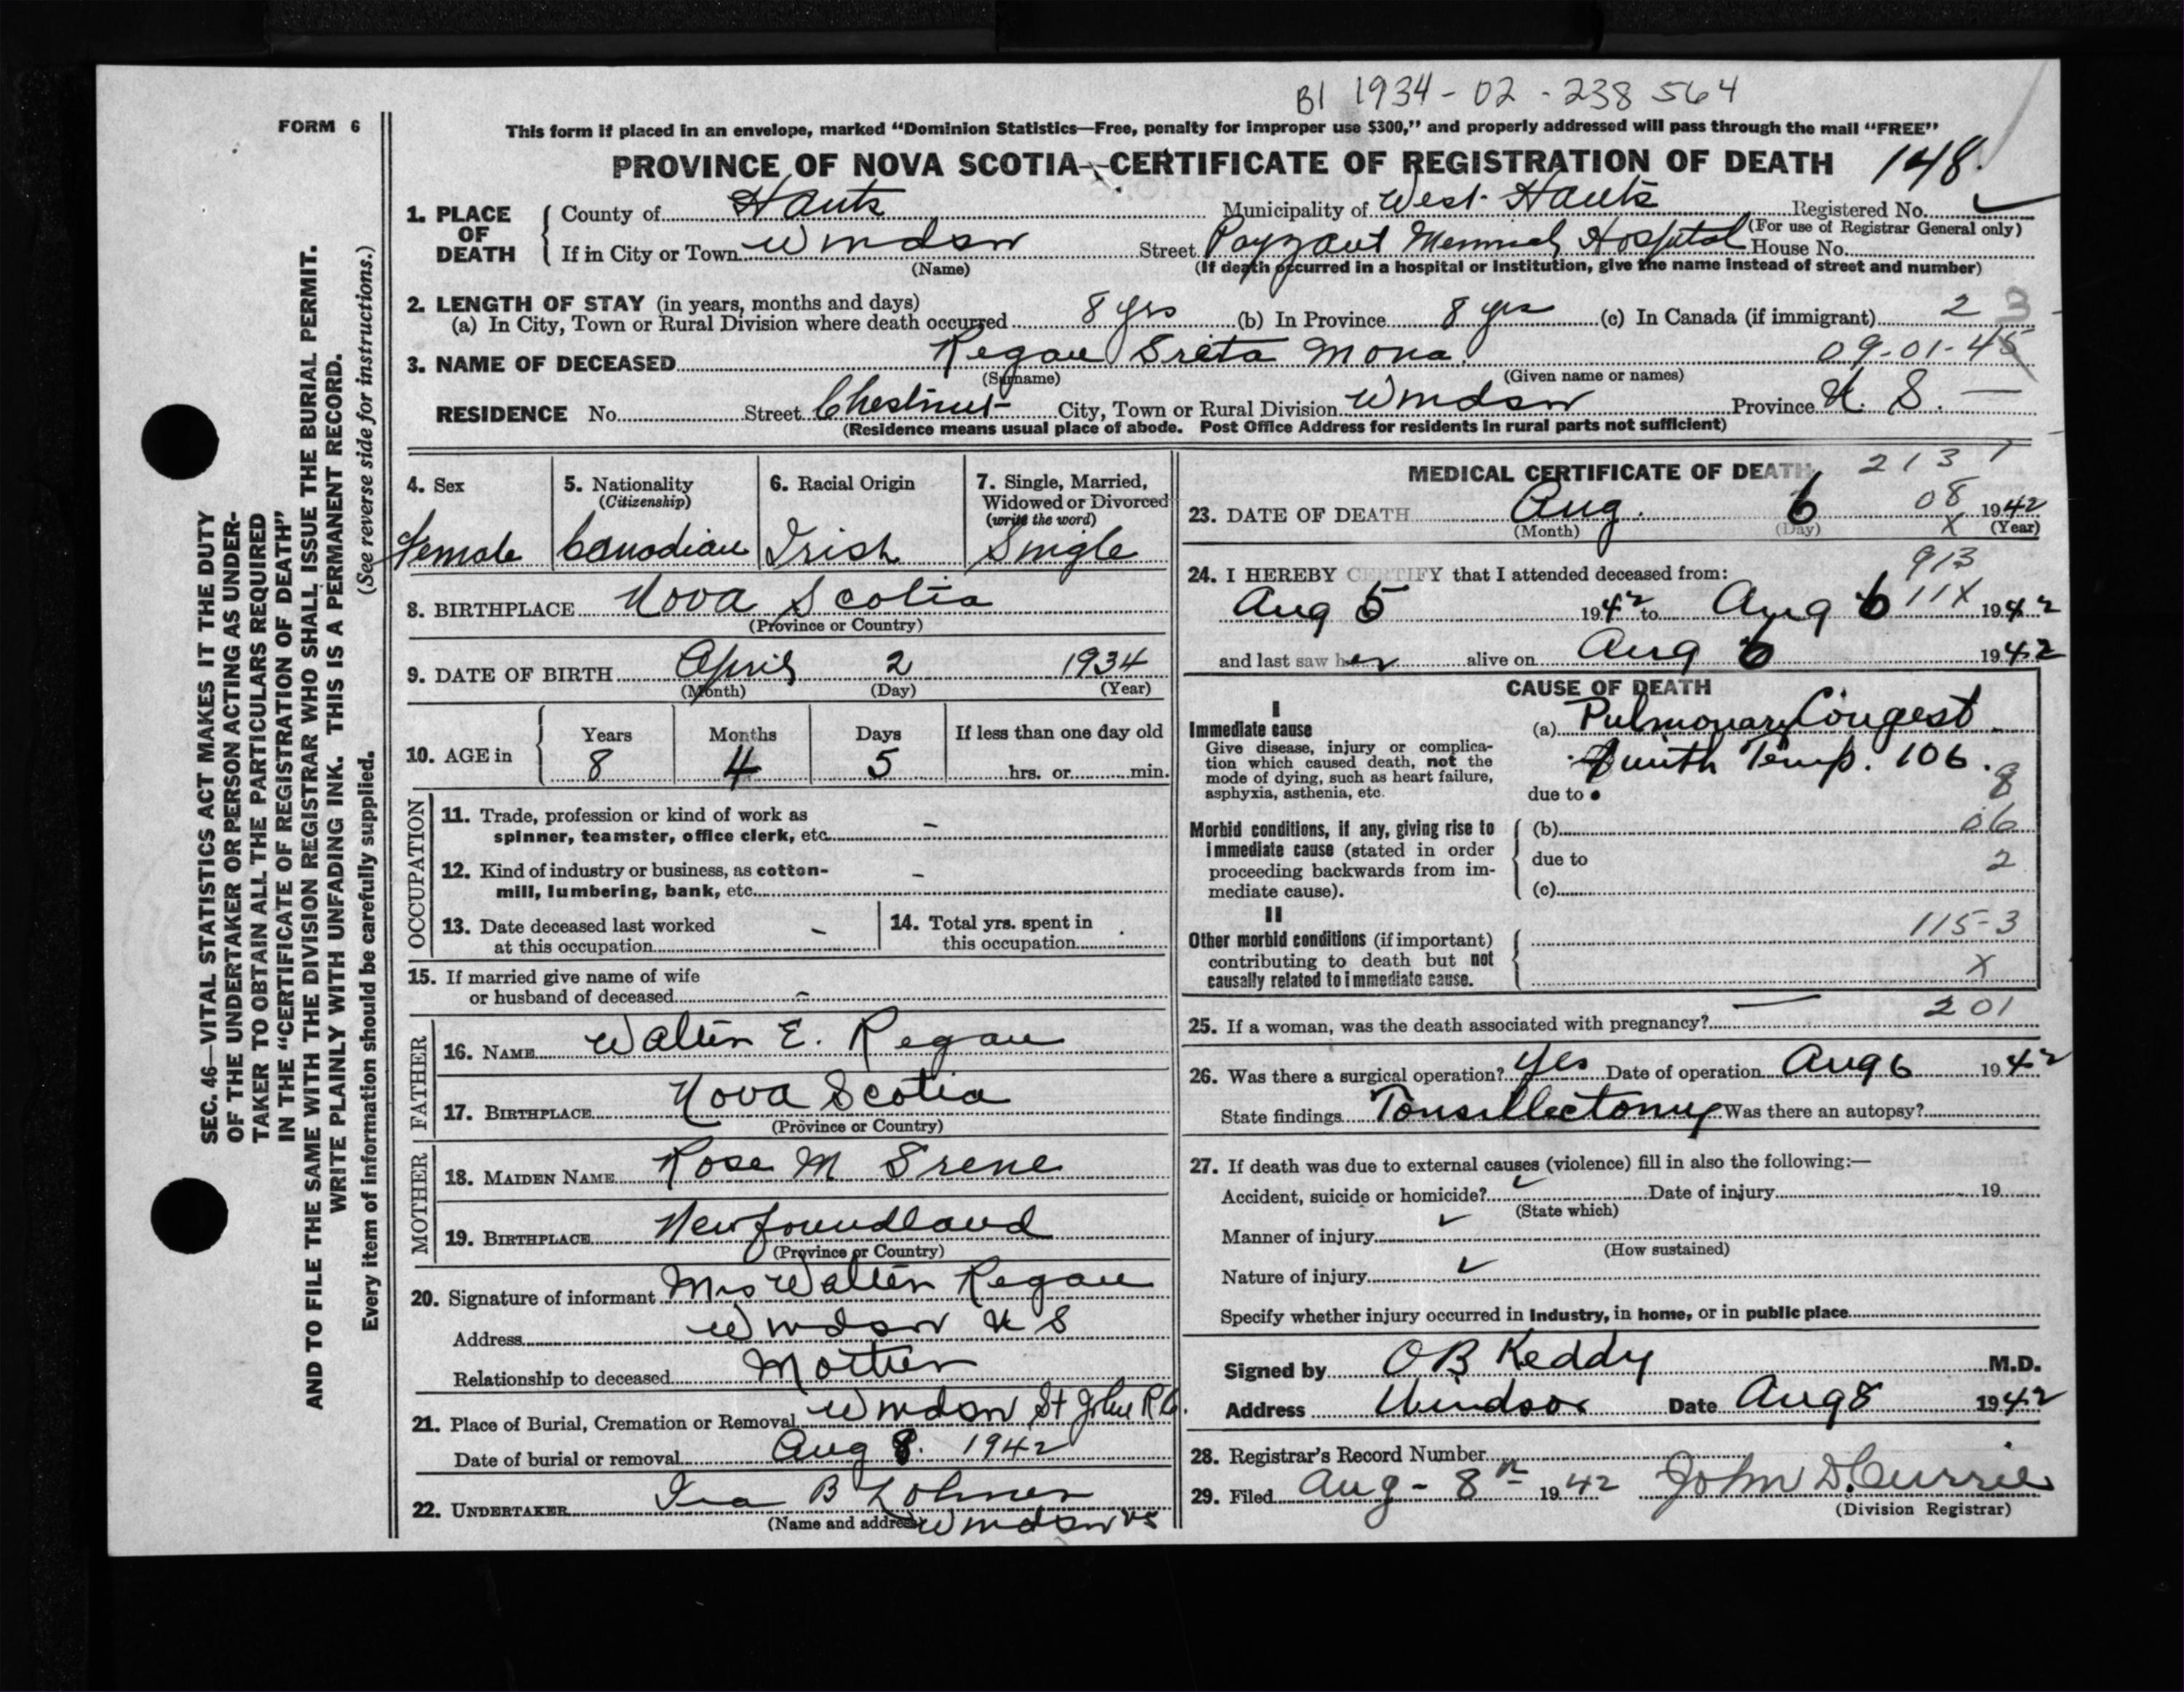 BI 1934-02-238564
FORM 6
This form if placed in an envelope, marked "Dominion Statistics—Free, penalty for improper use $300," and properly addressed will pass through the mail "FREE"
PROVINCE OF NOVA SCOTIA—CERTIFICATE OF REGISTRATION OF DEATH 148.
1. PLACE OF DEATH
County of Hants Municipality of West Hants Registered No.
(For use of Registrar General only)
If in City or Town Windsor Street Payzant Memorial Hospital House No.
(Name) (If death occurred in a hospital or institution, give the name instead of street and number)
2. LENGTH OF STAY (in years, months and days)
(a) In City, Town or Rural Division where death occurred 8 yrs (b) In Province 8 yrs (c) In Canada (if immigrant) 2 3
3. NAME OF DECEASED Regan Greta Mona 09-01-45
(Surname) (Given name or names)
RESIDENCE No. Street Chestnut City, Town or Rural Division Windsor Province N. S.
(Residence means usual place of abode. Post Office Address for residents in rural parts not sufficient)
4. Sex 5. Nationality (Citizenship) 6. Racial Origin 7. Single, Married, Widowed or Divorced (write the word)
Female Canadian Irish Single
8. BIRTHPLACE Nova Scotia
(Province or Country)
9. DATE OF BIRTH April 2 1934
(Month) (Day) (Year)
10. AGE in Years Months Days If less than one day old
8 4 5 hrs. or min.
OCCUPATION
11. Trade, profession or kind of work as
spinner, teamster, office clerk, etc. -
12. Kind of industry or business, as cotton-
mill, lumbering, bank, etc. -
13. Date deceased last worked
at this occupation -
14. Total yrs. spent in
this occupation
15. If married give name of wife
or husband of deceased -
FATHER
16. NAME Walter E. Regan
17. BIRTHPLACE Nova Scotia
(Province or Country)
MOTHER
18. MAIDEN NAME Rose M
19. BIRTHPLACE Newfoundland
(Province or Country)
20. Signature of informant Mrs Walter Regan
Address Windsor N S
Relationship to deceased Mother
21. Place of Burial, Cremation or Removal Windsor St John R C.
Date of burial or removal Aug 8. 1942
22. UNDERTAKER Ira B Lohnes
(Name and address) Windsor NS
MEDICAL CERTIFICATE OF DEATH 2131
23. DATE OF DEATH Aug. 6 08 1942
(Month) (Day) X (Year)
24. I HEREBY CERTIFY that I attended deceased from: 913
Aug 5 1942 to Aug 6 11X 1942
and last saw her alive on Aug 6 1942
CAUSE OF DEATH
I
Immediate cause
Give disease, injury or complica-
tion which caused death, not the
mode of dying, such as heart failure,
asphyxia, asthenia, etc.
(a) Pulmonary Congest
with Temp. 106.
due to 8
Morbid conditions, if any, giving rise to
immediate cause (stated in order
proceeding backwards from im-
mediate cause).
(b) 06
due to 2
(c)
II
Other morbid conditions (if important)
contributing to death but not
causally related to immediate cause.
115-3
X
201
25. If a woman, was the death associated with pregnancy? —
26. Was there a surgical operation? Yes Date of operation Aug 6 1942
State findings Tonsillectomy Was there an autopsy?
27. If death was due to external causes (violence) fill in also the following:—
Accident, suicide or homicide? Date of injury 19
(State which)
Manner of injury
(How sustained)
Nature of injury
Specify whether injury occurred in industry, in home, or in public place
Signed by OB Keddy M.D.
Address Windsor Date Aug 8 1942
28. Registrar's Record Number
29. Filed Aug - 8th 1942 John D. Currie
(Division Registrar)
SEC. 46—VITAL STATISTICS ACT MAKES IT THE DUTY
OF THE UNDERTAKER OR PERSON ACTING AS UNDER-
TAKER TO OBTAIN ALL THE PARTICULARS REQUIRED
IN THE "CERTIFICATE OF REGISTRATION OF DEATH"
AND TO FILE THE SAME WITH THE DIVISION REGISTRAR WHO SHALL ISSUE THE BURIAL PERMIT.
WRITE PLAINLY WITH UNFADING INK. THIS IS A PERMANENT RECORD.
Every item of information should be carefully supplied. (See reverse side for instructions.)